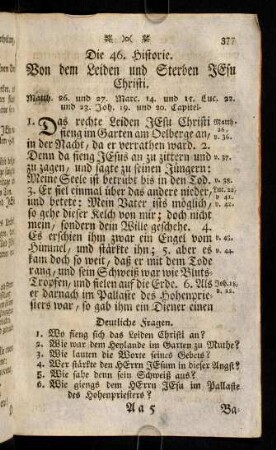 377
Die 46. Historie.
Von dem Leiden und Sterben JEsu
Christi.
Matth. 26. und 27. Marc. 14. und 15. Luc. 22.
und 23. Joh. 19. und 20. Capitel.
1. Das rechte Leiden JEsu Christi Matth.
fieng im Garten am Oelberge an, v. 36.
in der Nacht, da er verrathen ward. 2.
Denn da fieng JEsus an zu zittern und v. 37.
zu zagen, und sagte zu seinen Jüngern:
Meine Seele ist betrübt bis in den Tod. v. 38.
3. Er fiel einmal über das andere nieder, Luc. 22,
und betete: Mein Vater ists möglich, v. 41.
so gehe dieser Kelch von mir; doch nicht v. 42.
mein, sondern dein Wille geschehe. 4.
Es erschien ihm zwar ein Engel vom v. 43.
Himmel, und stärkte ihn; 5. aber es v. 44.
kam doch so weit, daß er mit dem Tode
rang, und sein Schweiß war wie Bluts-
Tropfen, und fielen auf die Erde. 6. Als Joh. 18.
er darnach im Pallaste des Hohenprie- v. 22.
sters war, so gab ihm ein Diener einen
Deutliche Fragen.
1 Wo fieng sich das Leiden Christi an?
2 Wie war dem Heylande im Garten zu Muthe?
3 Wie lauten die Worte seines Gebets?
4 Wer stärkte den HErrn JEsum in dieser Angst?
5 Wie sahe denn sein Schweiß aus?
6 Wie giengs dem HErrn JEsu im Pallaste
des Hohenpriesters?
A a 5 Ba-